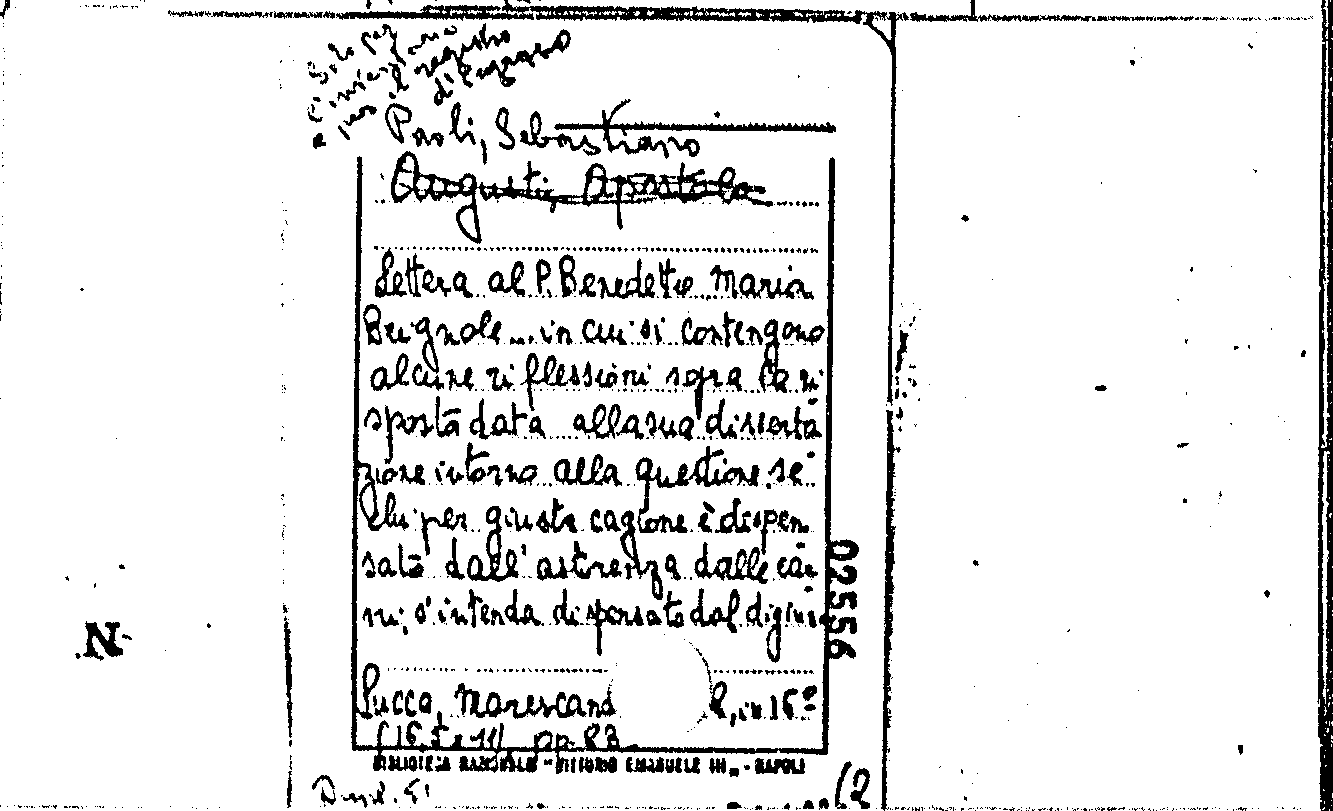 Paoli, Sebastiano
Augusti, Apostolo
Lettera al P. Benedetto Maria
Brignole... in cui si contengono
alcune riflessioni sopra la ri
sposta data alla sua disserta
zione intorno alla questione. se
Chi per giusta cagione è dispen
sato dall'astinenza dalle car
ni, s'intenda dispensato dal digiuno
Lucca, Marescand 2, in 16º
(16,5 x 11) pp. 83
BIBLIOTECA NAZIONALE - VITTORIO EMANUELE III„ - NAPOLI
02556
N
(2